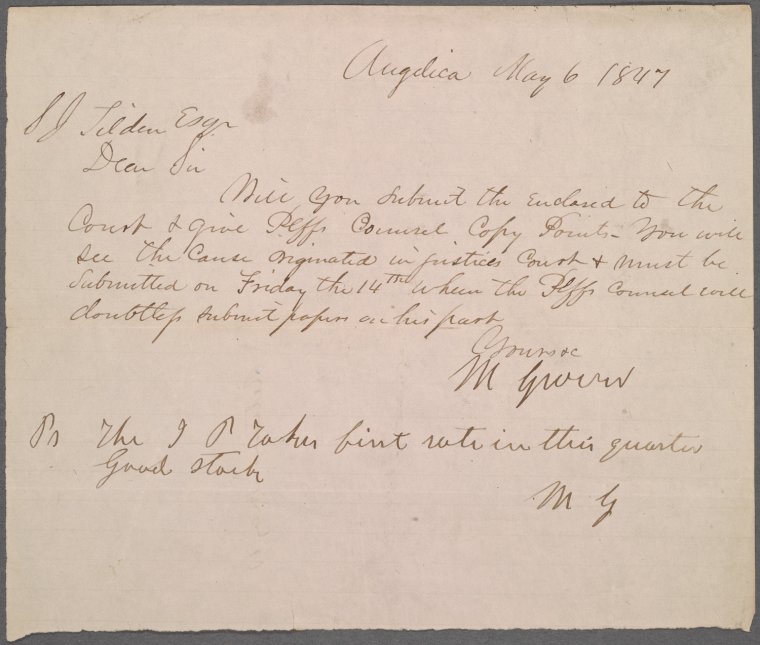 Angelica May 6 1847
S J Tilden Esqr
Dear Sir
Will you submit the enclosed to the
Court & give Plffs Counsel Copy Points - You will
see the Cause originated in justices Court & must be
submitted on Friday the 14th when the Plffs Counsel will
doubtless submit papers on his part
Yours &c
M
Ps The J P takes first rate in this quarter
Good stock
M G